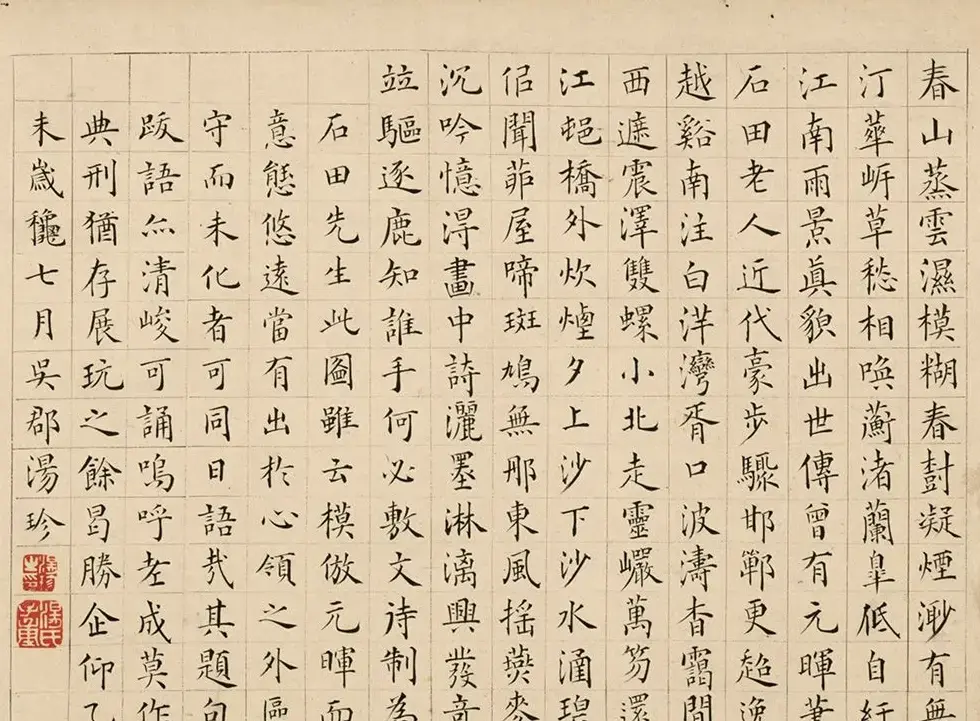 春山蒸雲濕模糊春樹凝煙渺有無
汀華岸草愁相喚蘅渚蘭皐低自紆
江南雨景真貌出世傳曾有元暉筆
石田老人近代豪步驟邯鄲更超逸
越谿南注白洋灣胥口波濤杳靄間
西遮震澤雙螺小北走靈巖萬笏還
江邨橋外炊煙夕上沙下沙水涵碧
佀聞茆屋啼斑鳩無那東風揺燕麥
沉吟憶得畫中詩灑墨淋漓興發奇
竝驅逐鹿知誰手何必敷文待制為
石田先生此圖雖云模倣元暉而
意態悠遠當有出於心領之外區
守而未化者可同日語哉其題句
跋語亦清峻可誦嗚呼老成莫作
典刑猶存展玩之餘曷勝企仰乙
未歲龝七月吳郡湯珍
湯氏子重